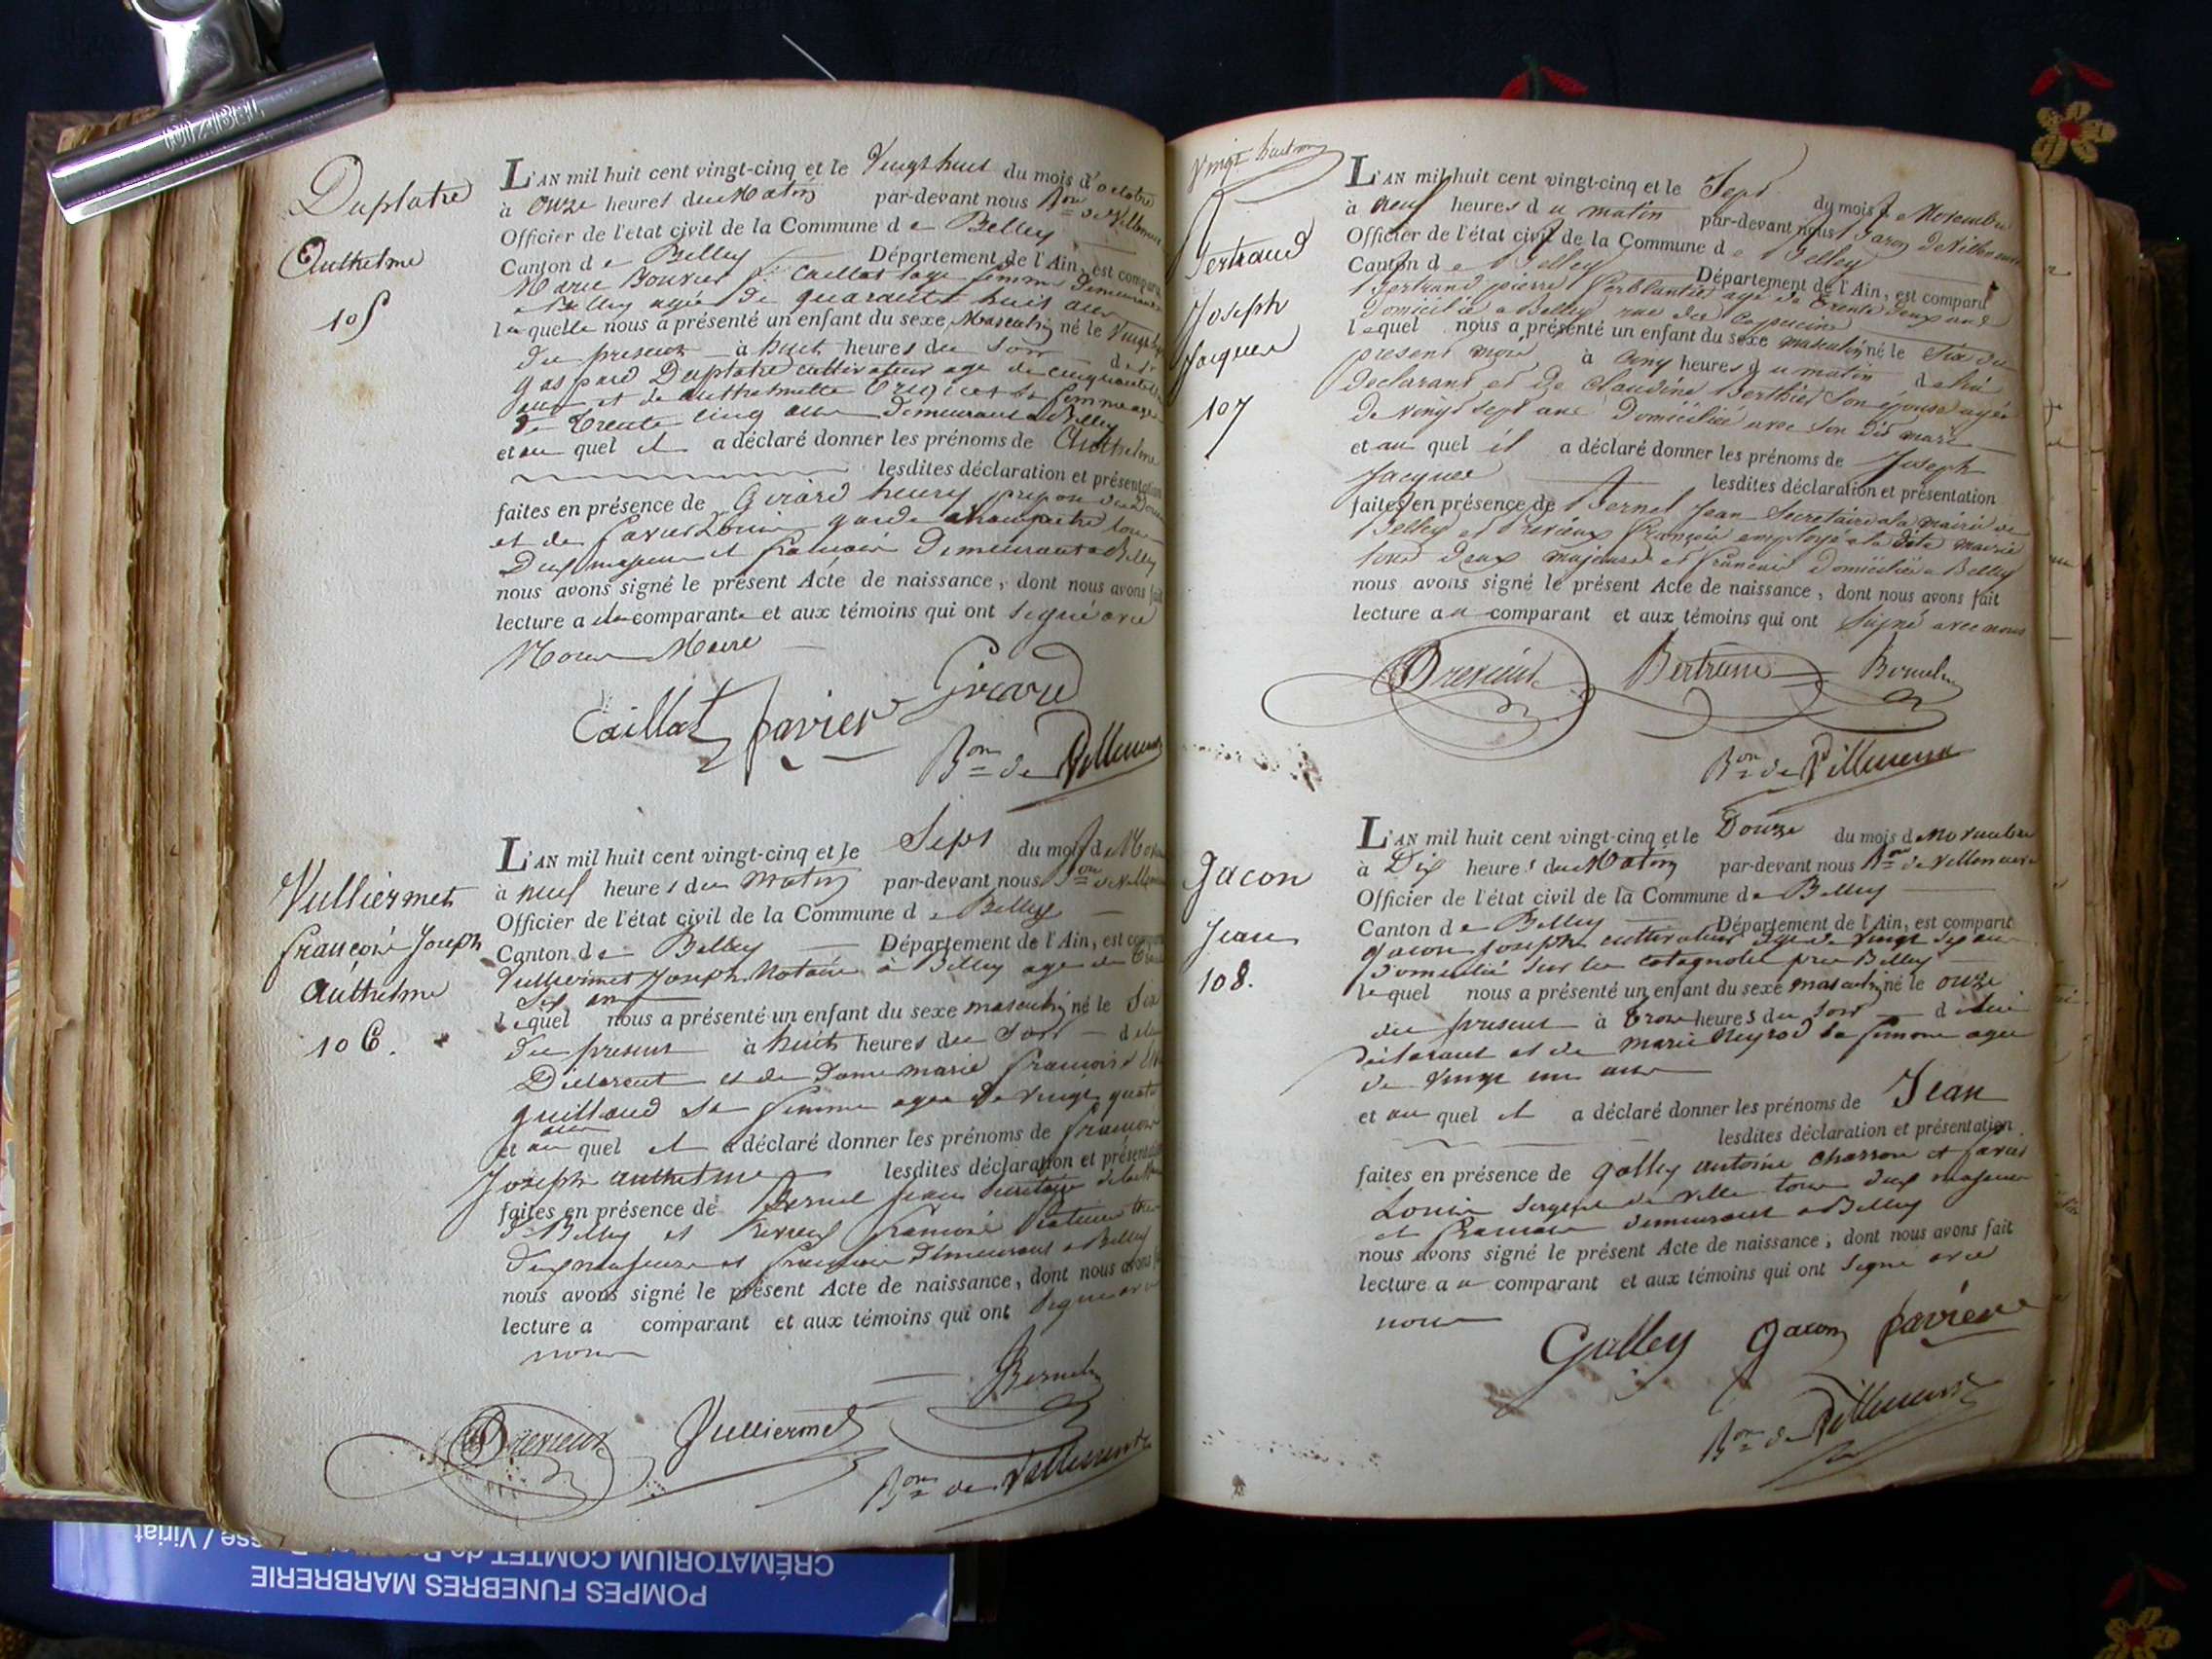 Duplatre
Anthelme
105
L'AN mil huit cent vingt-cinq et le Vingt huit du mois d'octobre
à onze heures du Matin par-devant nous Bon de Villeneuve
Officier de l'état civil de la Commune de Belley
Canton de Belley Département de l'Ain, est comparu
Marie Bouvier f. Caillat sage femme demeurant
a Belley agée de quarante huit ans
laquelle nous a présenté un enfant du sexe Masculin né le Vingt
du present à huit heures du soir de
gaspard Duplatre cultivateur agé de cinquante
ans et de Anthelmette sa femme agée
de trente cinq ans demeurant a Belley
et au quel il a déclaré donner les prénoms de Anthelme
lesdites déclaration et présentation
faites en présence de Girard henry
et de favier Louis garde champetre tous
Deux majeurs et français demeurant a Belley
nous avons signé le présent Acte de naissance, dont nous avons fait
lecture a la comparante et aux témoins qui ont signé avec
Nous Maire
Caillat favier Girard
Bon de Villeneuve
Vulliermet
françois Joseph
Anthelme
106.
L'AN mil huit cent vingt-cinq et le Sept du mois de Nov
à neuf heures du matin par-devant nous Bon de Villeneuve
Officier de l'état civil de la Commune de Belley
Canton de Belley Département de l'Ain, est comparu
Vulliermet Joseph Notaire à Belley agé de
Six ans
lequel nous a présenté un enfant du sexe masculin né le Six
du present à huit heures du soir de lui
Déclarant et de Dame marie françoise
guillaud sa femme agée de vingt quatre
ans
et au quel il a déclaré donner les prénoms de françois
Joseph anthelme lesdites déclaration et présentation
faites en présence de Bernel jean Secretaire de la
de Belley et Previeux françois tous
deux majeurs et français demeurant a Belley
nous avons signé le présent Acte de naissance, dont nous avons fait
lecture a comparant et aux témoins qui ont signé avec
nous
Bernel
Drevieux Vulliermet
Bon de Villeneuve
Vingt huit
Bertrand
Joseph
Jacques
107
L'AN mil huit cent vingt-cinq et le Sept du mois de Novembre
à neuf heures du matin par-devant nous Baron de Villeneuve
Officier de l'état civil de la Commune de Belley
Canton de Belley Département de l'Ain, est comparu
Bertrand pierre ferblantier agé de trente deux ans
domicilié a Belley rue des Capucins
lequel nous a présenté un enfant du sexe masculin né le Six du
présent mois à cinq heures du matin de lui
déclarant et de Claudine Berthier son épouse agée
de vingt sept ans domiciliée avec son dit mari
et au quel il a déclaré donner les prénoms de Joseph
Jacques lesdites déclaration et présentation
faites en présence de Bernel Jean Secretaire a la mairie de
Belley et Drevieux françois employé a la dite mairie
tous deux majeurs et français domiciliés a Belley
nous avons signé le présent Acte de naissance, dont nous avons fait
lecture au comparant et aux témoins qui ont signé avec nous
Drevieux Bertrand Bernel
Bon de Villeneuve
Jacon
Jean
108.
L'AN mil huit cent vingt-cinq et le Douze du mois de Novembre
à Dix heures du Matin par-devant nous Bon de Villeneuve
Officier de l'état civil de la Commune de Belley
Canton de Belley Département de l'Ain, est comparu
Jacon Joseph cultivateur agé de vingt sept ans
domicilié sur les près Belley
lequel nous a présenté un enfant du sexe masculin né le onze
du present à trois heures du soir de lui
déclarant et de marie Neyrod sa femme agée
de vingt un ans
et au quel il a déclaré donner les prénoms de Jean
lesdites déclaration et présentation
faites en présence de Galley antoine charron et favier
Louis sergent de ville tous deux majeurs
et francais demeurant a Belley
nous avons signé le présent Acte de naissance, dont nous avons fait
lecture au comparant et aux témoins qui ont signé avec
nous
Galley Jacon favier
Bon de Villeneuve
POMPES FUNEBRES MARBRERIE
CRÉMATORIUM COMTET de
/ Viriat